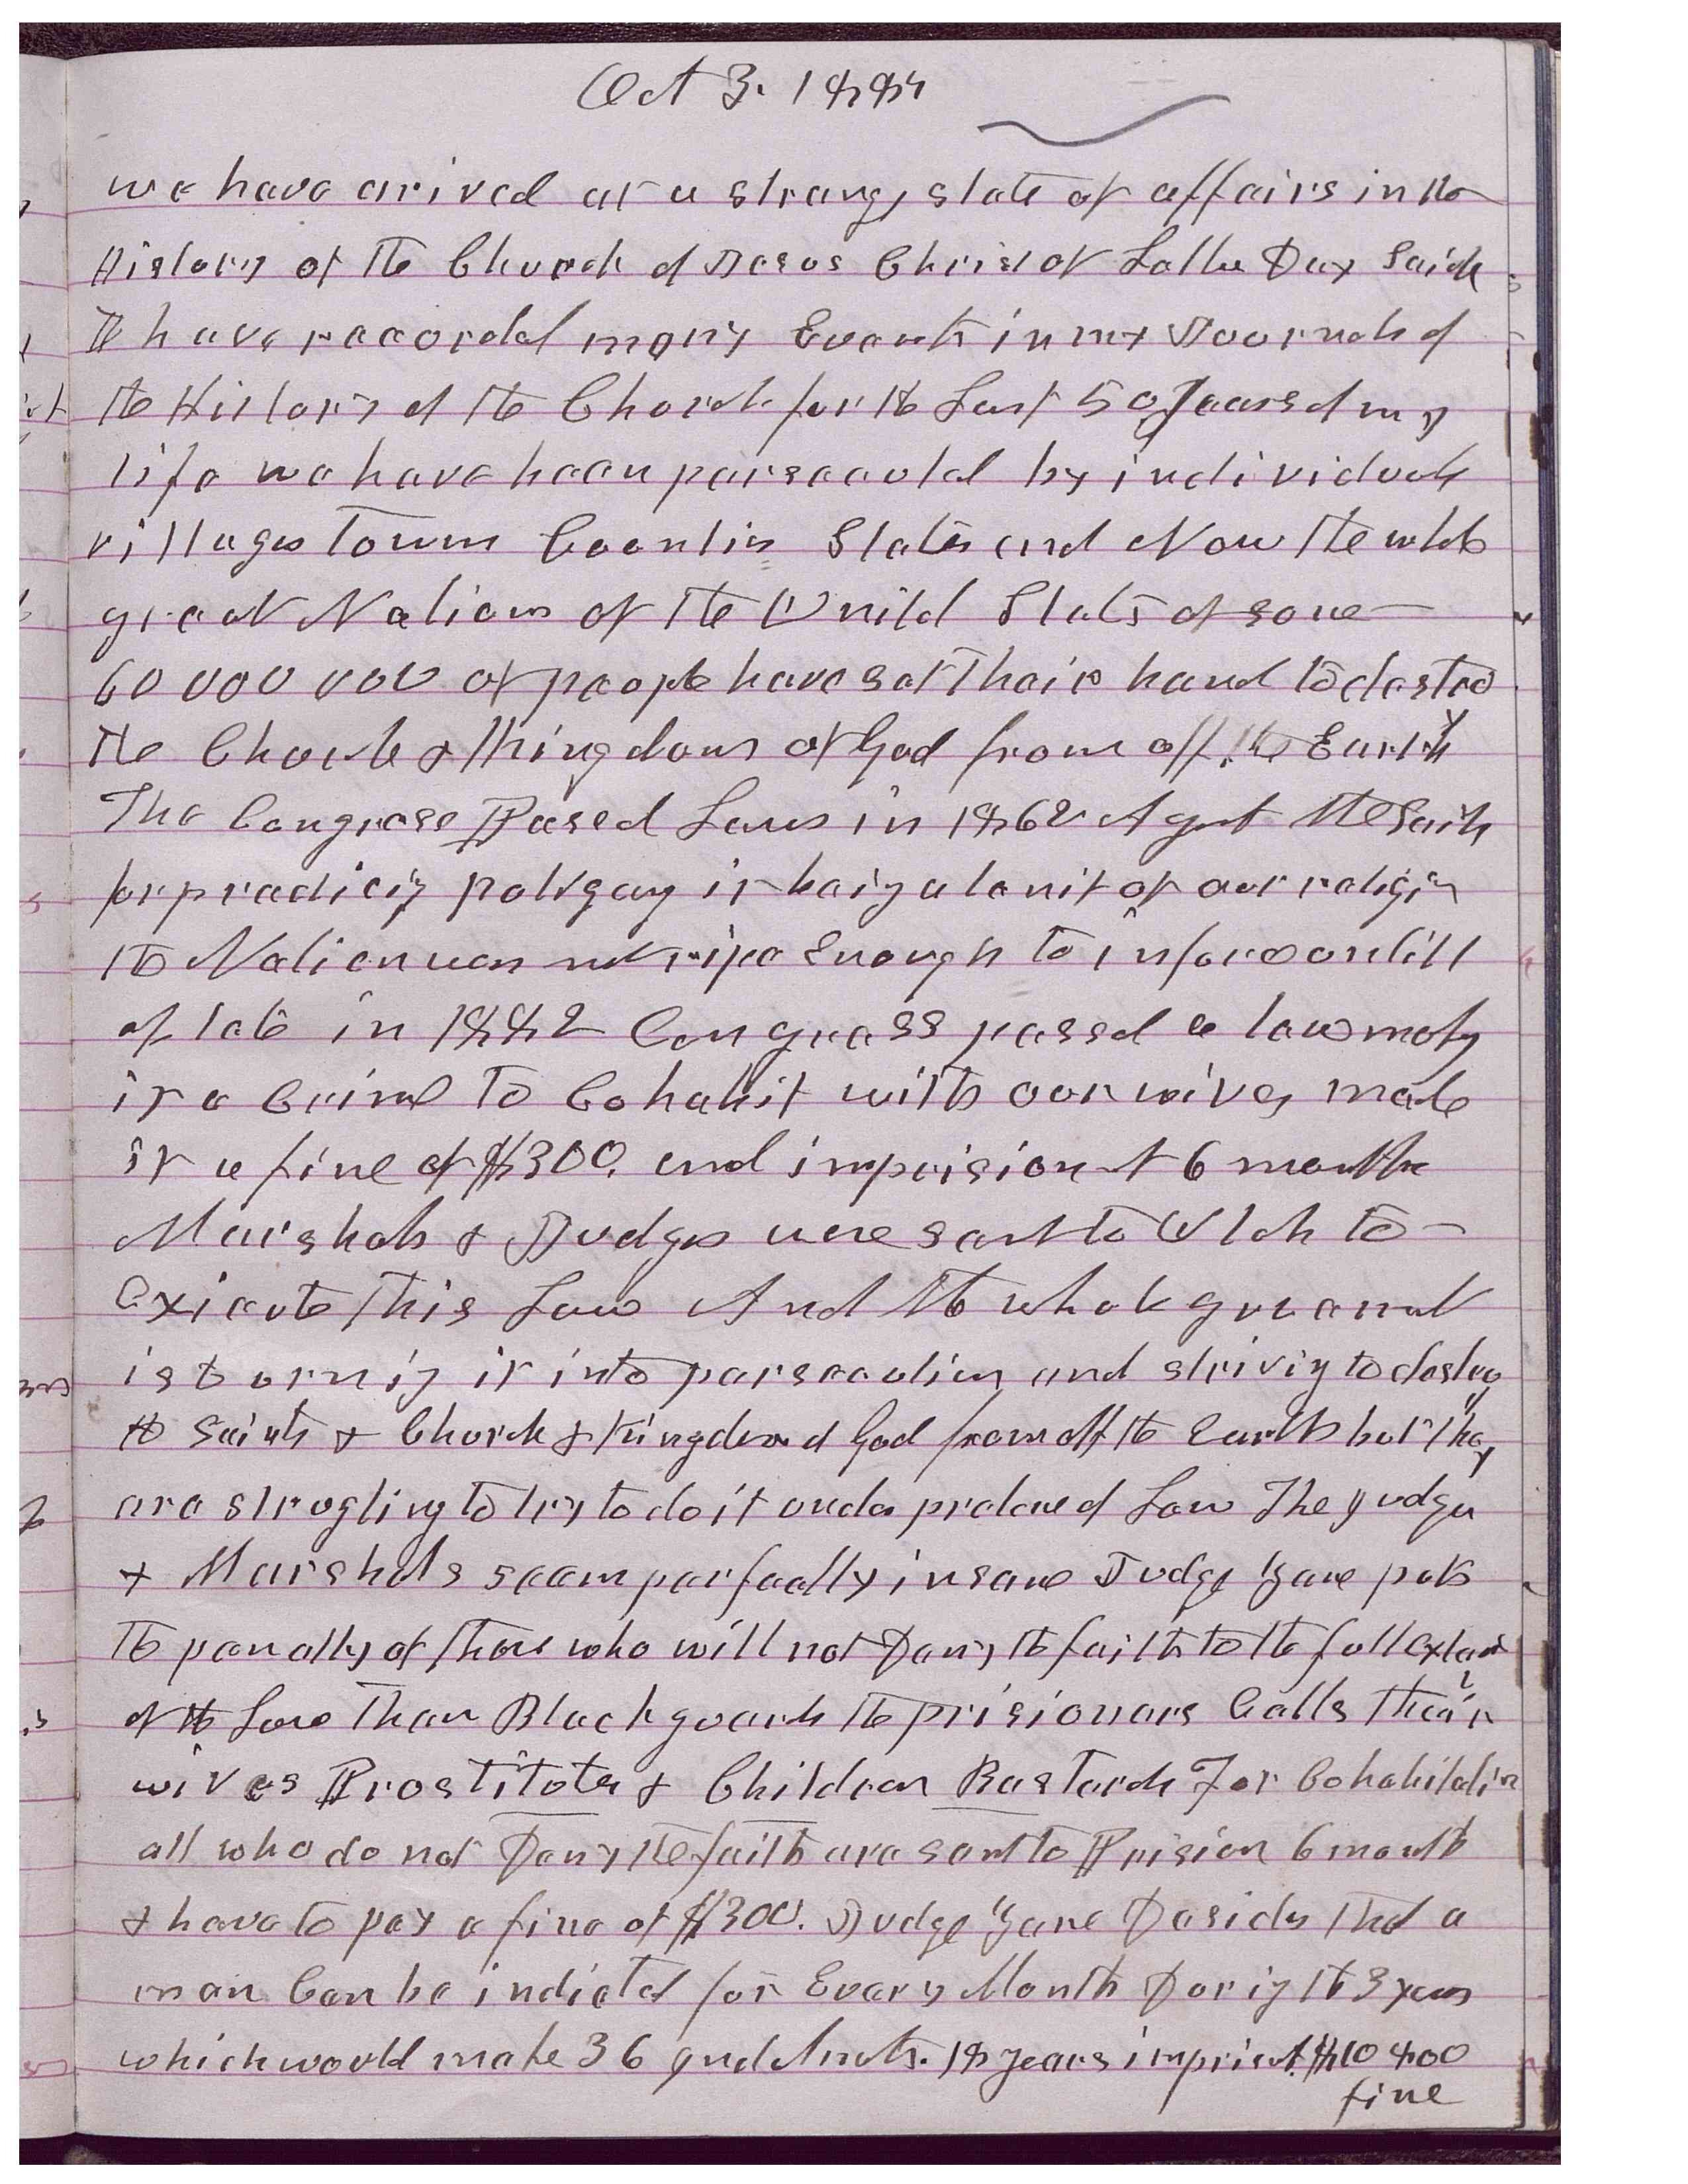 Oct 3. 1885
we have arived at a strang state of affairs in the
History of the Church of Jesus Christ of Latter Day Saints
I have recorded many Events in my Journals of
the History of the Church for the Last 50 years of my
life we have been persecuted by individuals
villages Towns Counties States and Now the whole
great Nation of the Unitd States of some
60 000 000 of people have set their hand to destroy
the Church & Kingdom of God from off the Earth
The Congress Pased Laws in 1862 Against the Saints
for practicing poligamy it being a tenit of our religion
the Nation was not ripe Enough to inforce untill
of late in 1882 Congress passed a law making
it a Crime to Cohabit with our wives made
it a fine of $300. and imprisionmt 6 months
Marshals & Judges were sent to Utah to
exicute this Law And the whole goverment
is turning it into persecution and striving to destroy
the Saints & Church & Kingdom of God from off the Earth but they
are strugling to try to do it under pretence of Law The judges
& Marshals seem perfectly insane Judge Zane puts
the penalty of those who will not Deny the faith to the full extent
of the Law Then Blackguards the prisionars Calls their
wives Prostitutes & Children Bastards For Cohabitation
all who do not Deny the faith are sent to Prision 6 months
& have to pay a fine of $300. Judge Zane Desides that a
man Can be indicted for Every Month During the 3 years
which would make 36 indctments. 18 years imprismt. $10800
fine